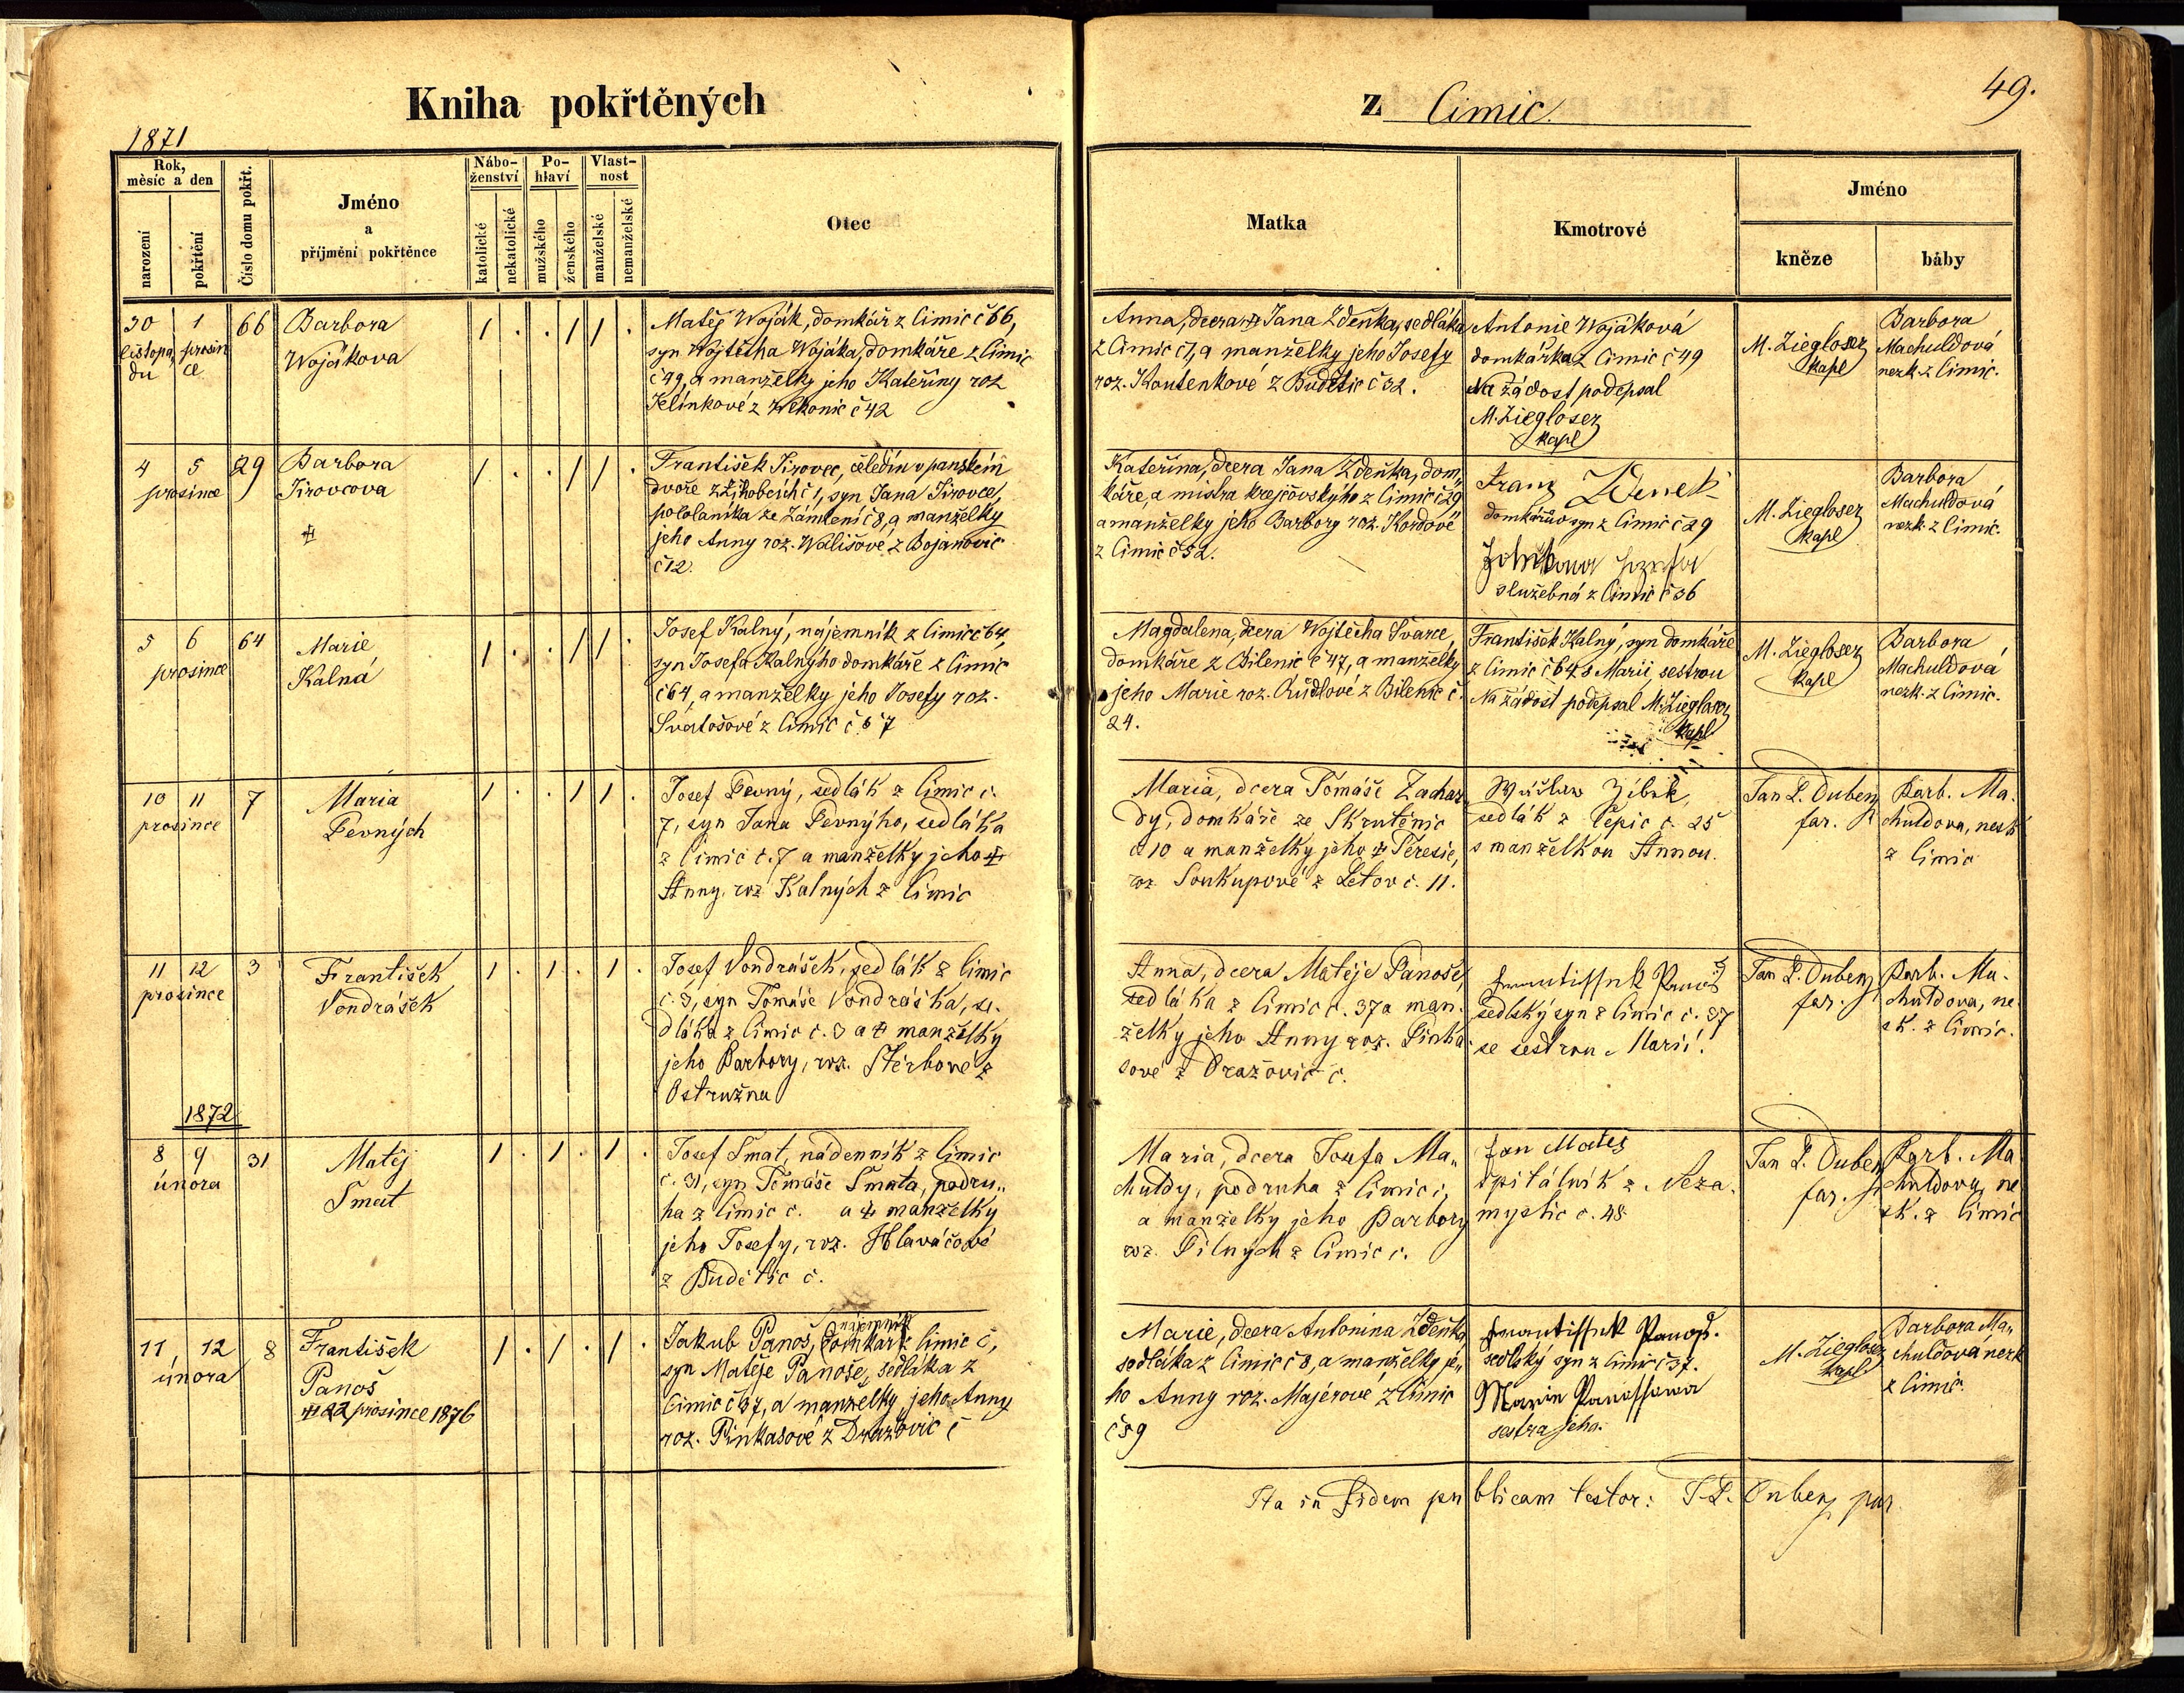 Kniha pokřtěných
z Cimic.
49.
1871
Rok,
měsíc a den
narození
pokřtění
Číslo domu pokřt.
Jméno
a
příjmění pokřtěnce
Nábo-
ženství
katolické
nekatolické
Po-
hlaví
mužského
ženského
Vlast-
nost
manželské
nemanželské
Otec
Matka
Kmotrové
Jméno
kněze
báby
30 1 66
listopa, prosin
du ce
Barbora
Wojákova
1 . . 1 1 .
Matěj Woják, domkář z Cimic č 66,
syn Wojtěcha Wojáka, domkáře z Cimic
č 49, a manželky jeho Kateřiny roz
Jelínkové z č 42
Anna, dcera Jana Zdeňka, sedláka
z Cimic č 1, a manželky jeho Josefy
roz. Koutenkové z Budětic č 32.
Antonie Wojáková
domkářka z Cimic č 49
Na žádost podepsal
M. Ziegloser
kapl
M. Ziegloser
kapl
Barbora
Machuldová
nezk. z Cimic.
4 5 29
prosince
Barbora
Jirovcova
1 . . 1 1 .
František Jirovec, čeledín v panském
dvoře z č 1, syn Jana Jirovce,
pololaníka ze Zámlení č 8, a manželky
jeho Anny roz. Wališové z Bojanovic
č 12.
Kateřina, dcera Jana Zdeňka, dom,
káře, a mistra krejčovskýho z Cimic č 29
a manželky jeho Barbory roz. Kordové
z Cimic č 52.
Franz Zdenek
domkářův syn z Cimic č 29
služebná z Cimic č 36
M. Ziegloser
kapl
Barbora
Machuldová
nezk. z Cimic.
5 6 64
prosince
Marie
Kalná
1 . . 1 1 .
Josef Kalný, nájemník z Cimic č 64,
syn Josefa Kalnýho domkáře z Cimic
č 64, a manželky jeho Josefy roz.
Svatošové z Cimic č 7
Magdalena, dcera Wojtěcha Švarce,
domkáře z Bilenic č 47, a manželky
jeho Marie roz. Rudlové z Bilenic č.
24.
František Kalný, syn domkáře
z Cimic č 64 s Marií sestrou
Na žádost podepsal M. Ziegloser
kapl
M. Ziegloser
kapl
Barbora
Machuldová
nezk. z Cimic.
10 11 7
prosince
Maria
Pevných
1 . . 1 1 .
Josef Pevný, sedlák z Cimic č.
7, syn Jana Pevnýho, sedláka
z Cimic č. 7 a manželky jeho
Anny, roz Kalných z Cimic
Maria, dcera Tomáše Zachar,
dy, domkáře ze Skrutěnic
č 10 a manželky jeho Teresie,
roz. Soukupové z Letov č. 11.
sedlák z Čepic č. 25
s manželkou Annou.
Jan P. Dubenz
far.
Barb. Ma.
chuldova, nezk
z Cimic
11 12 3
prosince
František
Vondrášek
1 . 1 . 1 .
Josef Vondrášek, sedlák z Cimic
č. 3, syn Tomáše Vondráška, se.
dláka z Cimic č. 3 a manželky
jeho Barbory, roz. Štěrbové z
Ostružna
Anna, dcera Matěje Panoše,
sedláka z Cimic č. 37 a man.
želky jeho Anny roz. Pinka
sové z Dražovic č.
Panoš
sedlský syn z Cimic č. 37
se sestrou Marií.
Jan P. Dubenz
far.
Barb. Ma.
chuldova, ne
zk. z Cimic.
1872
8 9 31
února
Matěj
Smat
1 . 1 . 1 .
Josef Smat, nádenník z Cimic
č. 31, syn Tomáše Smata, podru,,
ha z Cimic č. a manželky
jeho Josefy, roz. Hlaváčové
z Budětic č.
Maria, dcera Josefa Ma,,
chuldy, podruha z Cimic č,
a manželky jeho Barbory
roz. Pilných z Cimic č.
Jan Mates
špitálník z Neza.
myslic č. 48
Jan P. Dubenz
far.
Barb. Ma
chuldova, ne
zk. z Cimic
11 12 8
února
František
Panoš
22 prosince 1876
1 . 1 . 1 .
nájemník
Jakub Panoš, domkář z Cimic č,
syn Matěje Panoše, sedláka z
Cimic č 37, a manželky jeho Anny
roz. Pinkasové z Dražovic č
Marie, dcera Antonína Zdeňka
sedláka z Cimic č 8, a manželky je,,
ho Anny roz. Majerové z Cimic
č 59
Panoš.
sedlský syn z Cimic č 37.
Marie Panoschowa
sestra jeho.
M. Ziegloser
kapl
Barbora Ma,,
chuldová nezk
z Cimic.
Ita in fidem publicam testor: J. P. Dubenz par.